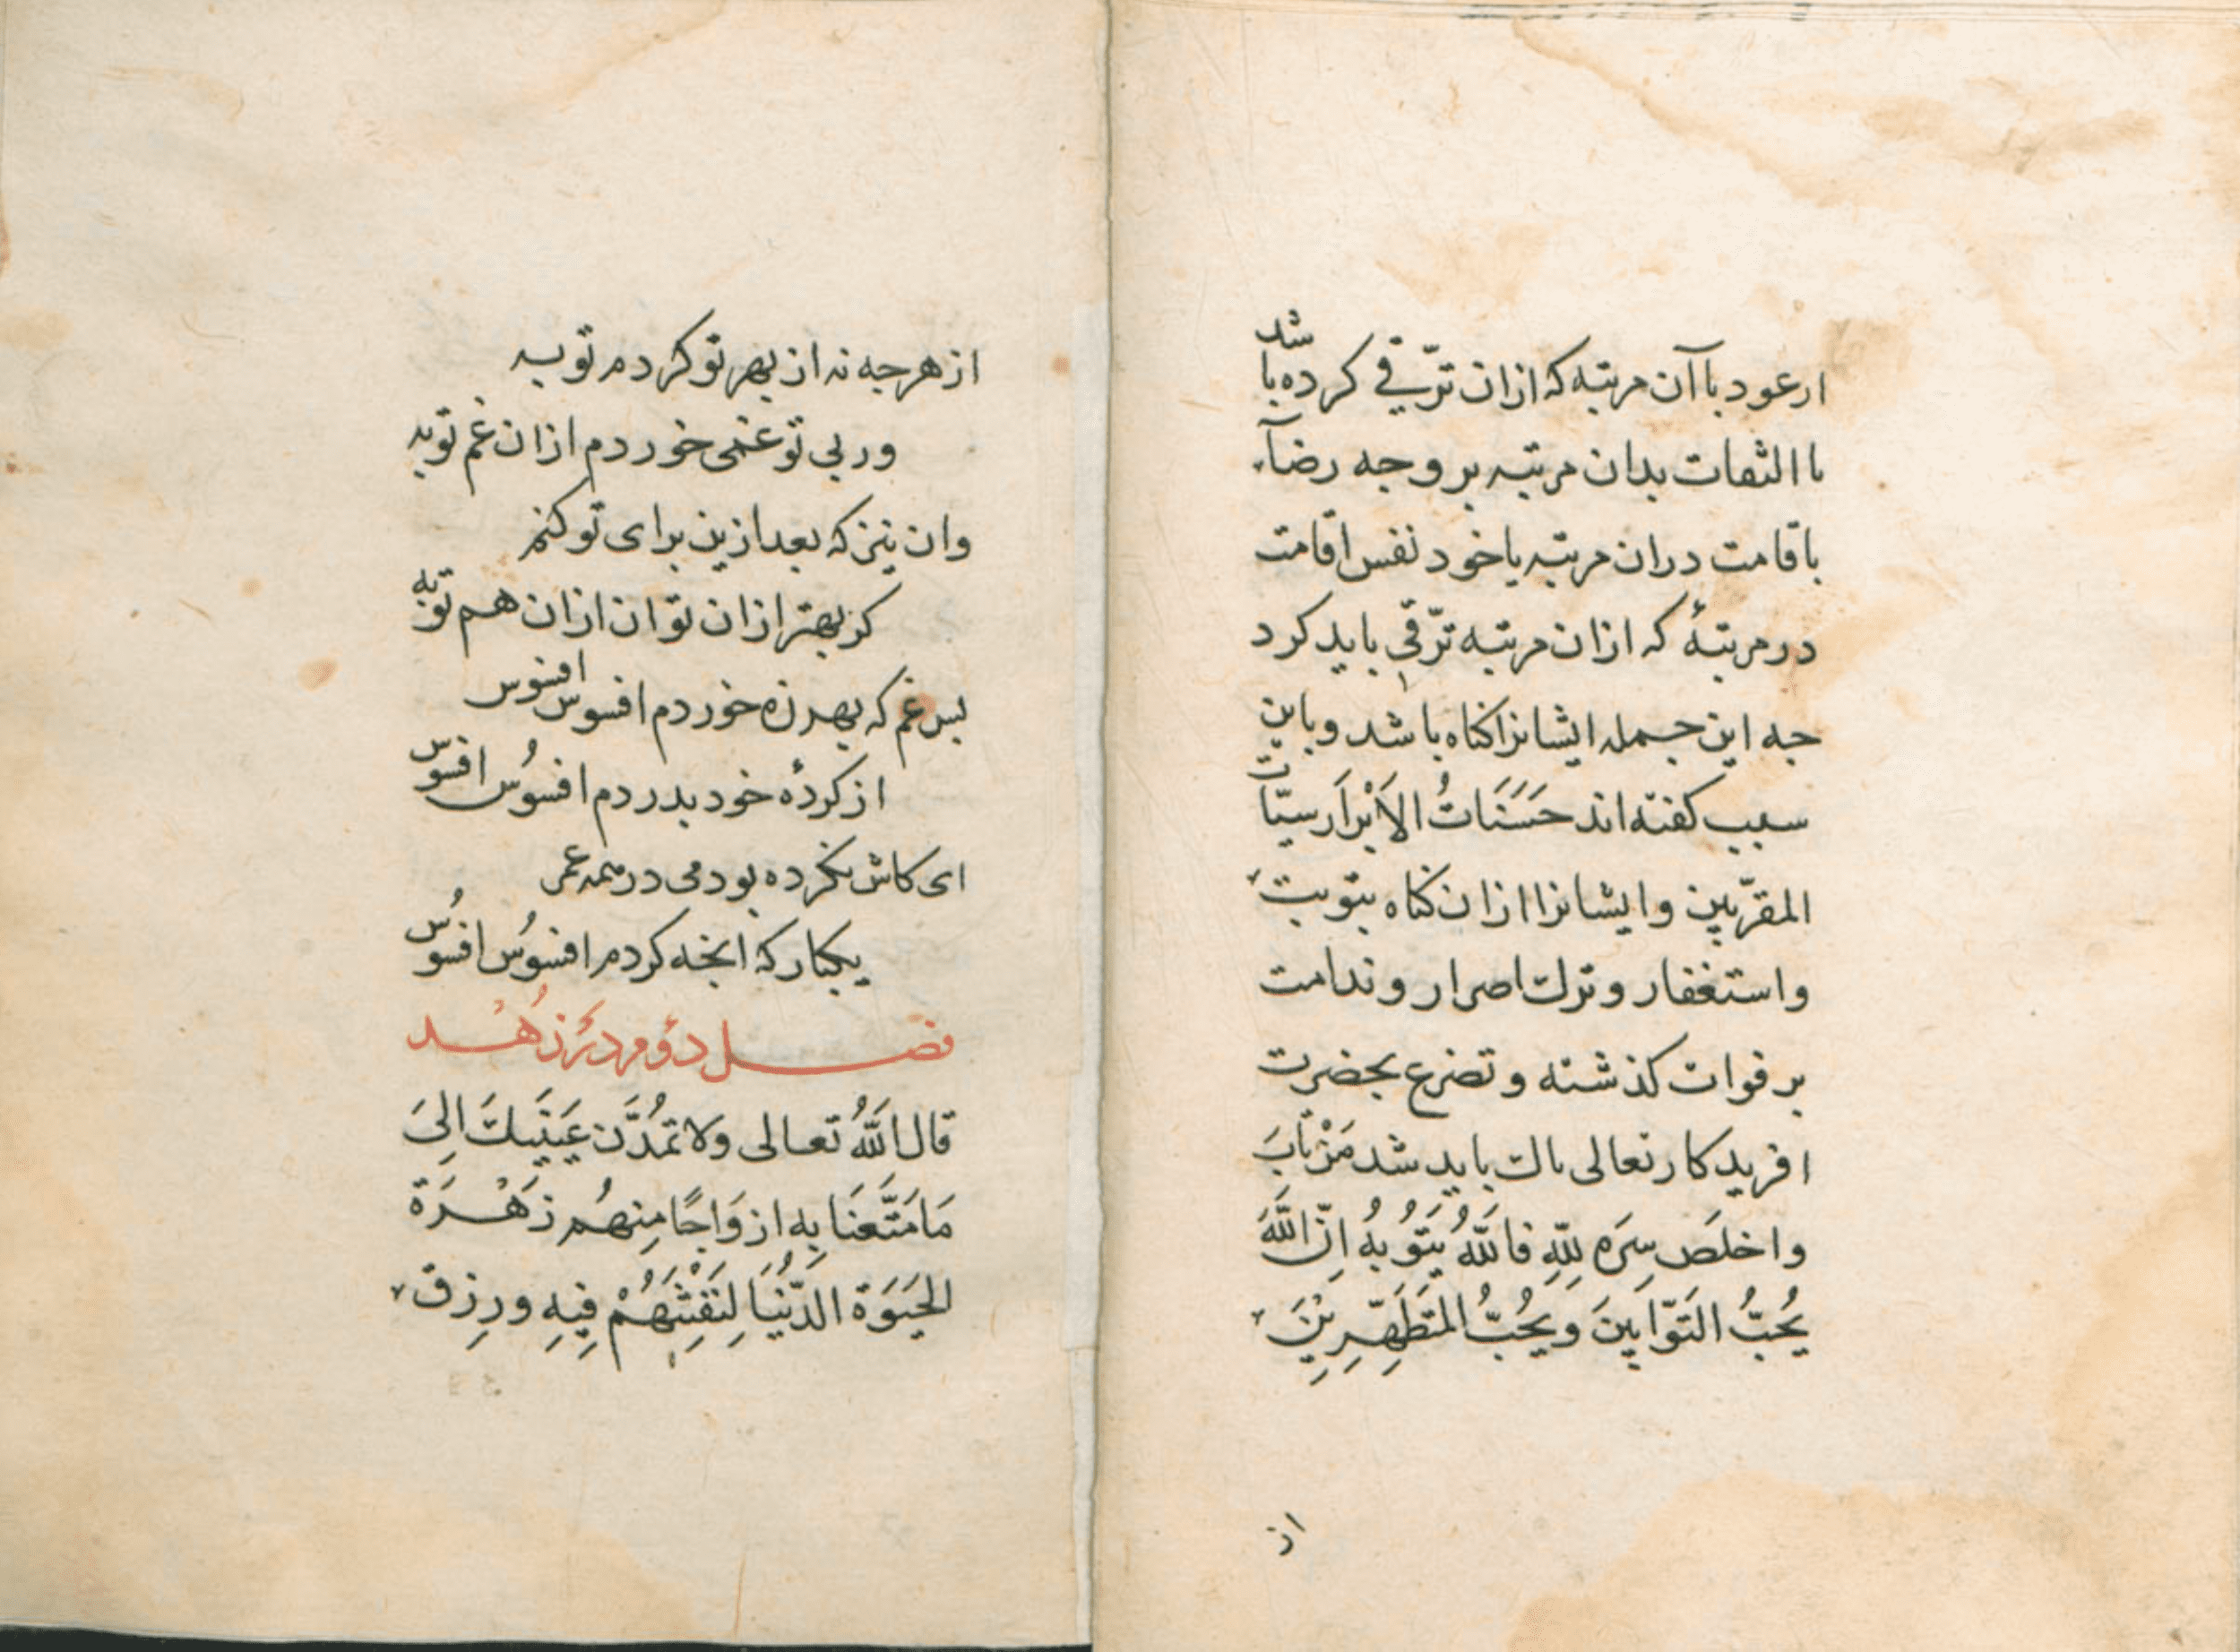 ار عود با آن مرتبه که ازان ترّقی کرده باشد
با التفات بدان مرتبه بر وجه رضآء
با قامت دران مرتبه یا خود نفس اقامت
در مرتبهٔ که ازان مرتبه ترّقی باید کرد
جه این جمله ایشانرا کناه باشد و باین
سبب کفته اند حَسَنَاتُ الاَبْرَار سیّات
المقرّبین و ایشانرا ازان کناه بتوبت
و استغفار و ترک اصرار و ندامت
بر فوات کذشته و تضرع بحضرت
افریدکار تعالی باک باید شد مَنْ تَابَ
و اخلَص سِرَه لِلّهِ فَاللَّهُ یَتُوبُهُ اِنَّ اللَّهَ
یُحِبُّ التَوّابِینَ وَیُحِبُّ المُتَطَهِّرِیْنَ
از
از هر جه نه از بهر تو کردم توبه
ور بی تو غمی خوردم ازان غم توبه
وان نیز که بعد ازین برای تو کنم
کر بهتر ازان توان ازان هم توبه
بس غم که بهرزه خوردم افسوس افسوس
از کردهٔ خود بدردم افسُوس افسوس
ای کاش نکرده بودمی در همه عمر
یکبار که انجه کردم افسُوس افسُوس
فصل دوم در زهد
قال اللَّهُ تعالی وَلا تَمُدَّن عَینَیکَ اِلیَ
مَا مَتَّعنَا بِهِ ازوَاجًا مِنهُم زَهْرَة
الحَیَوَة الدُّنْیَا لِنَفْتِنَهُمْ فِیهِ وَرِزق